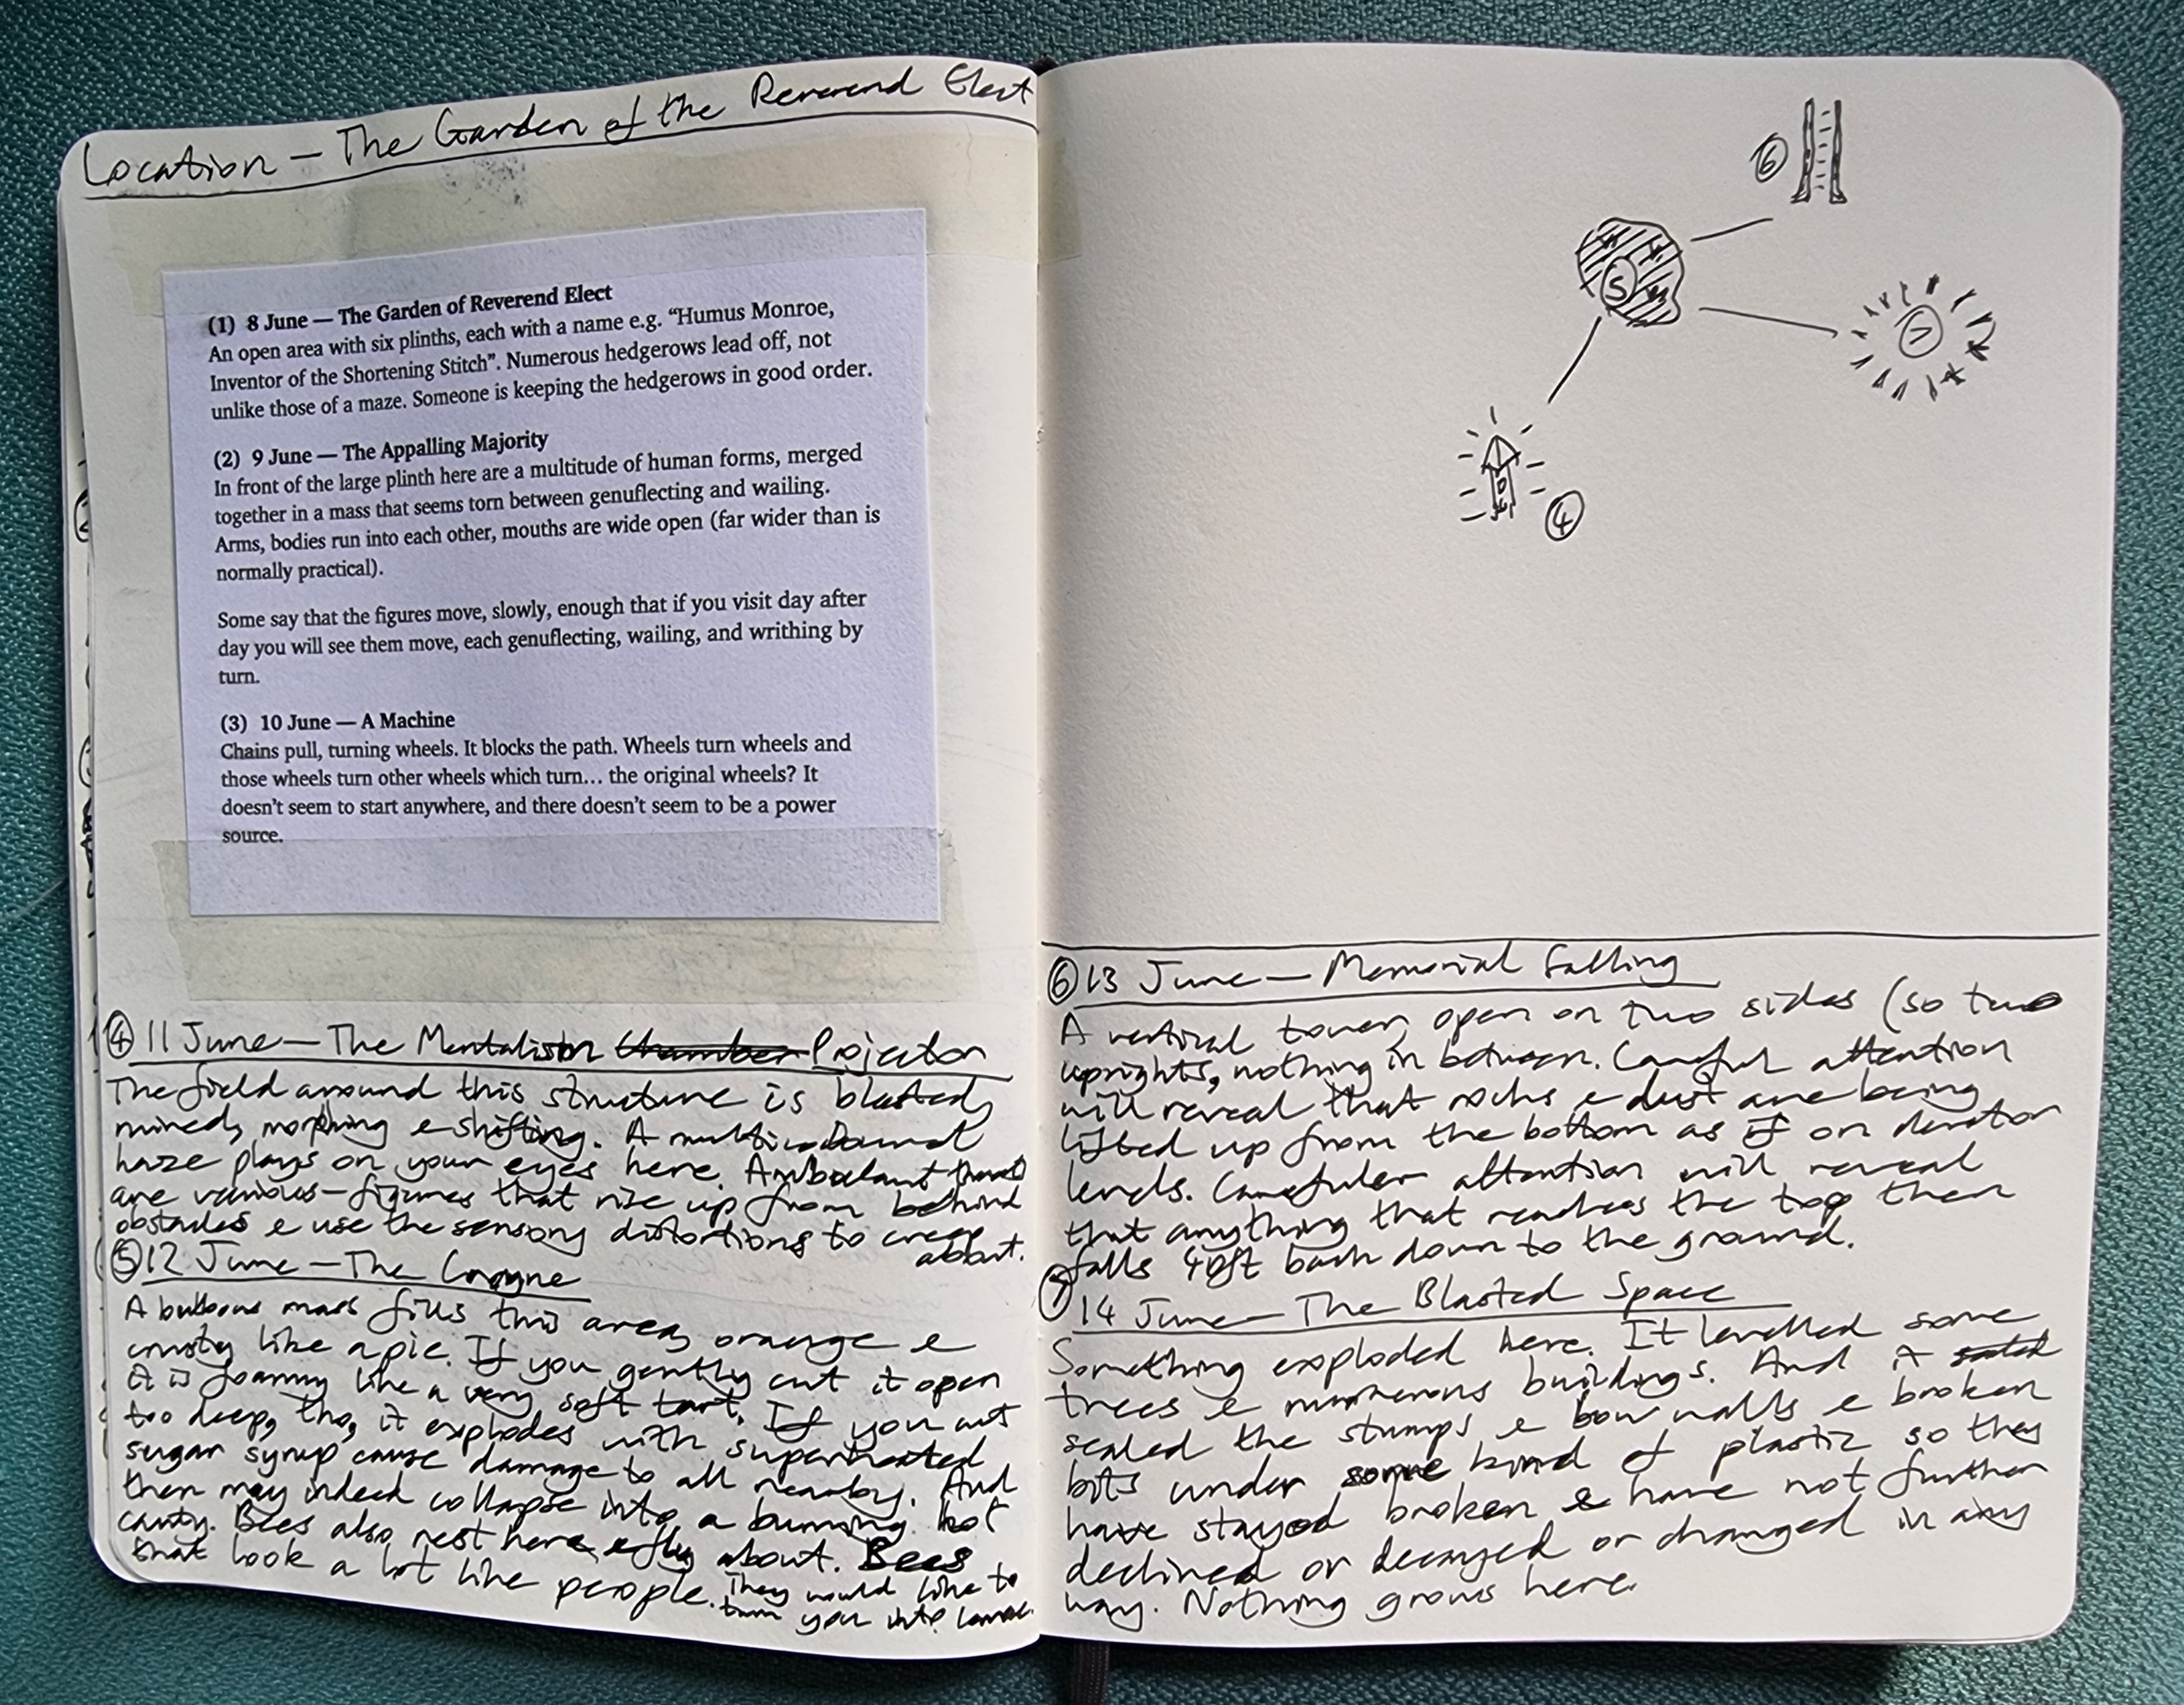 Location — The Garden of the Reverend Elect
(1) 8 June — The Garden of Reverend Elect
An open area with six plinths, each with a name e.g. “Humus Monroe,
Inventor of the Shortening Stitch”. Numerous hedgerows lead off, not
unlike those of a maze. Someone is keeping the hedgerows in good order.
(2) 9 June — The Appalling Majority
In front of the large plinth here are a multitude of human forms, merged
together in a mass that seems torn between genuflecting and wailing.
Arms, bodies run into each other, mouths are wide open (far wider than is
normally practical).
Some say that the figures move, slowly, enough that if you visit day after
day you will see them move, each genuflecting, wailing, and writhing by
turn.
(3) 10 June — A Machine
Chains pull, turning wheels. It blocks the path. Wheels turn wheels and
those wheels turn other wheels which turn... the original wheels? It
doesn’t seem to start anywhere, and there doesn’t seem to be a power
source.
④ 11 June — The Chamber Projector
The field around this structure is blasted,
morphing & shifting. A multicoloured
haze plays on your eyes here. Ambulant
are various — figures that rise up from behind
obstacles & use the sensory distortions to creep
about.
⑤ 12 June — The
A bulbous mass fills this area, orange &
crusty like a pie. If you gently cut it open
it is foamy like a very soft tart. If you cut
too deep, tho, it explodes with superheated
sugar syrup cause damage to all nearby. And
then may indeed collapse into a burning hot
cavity. Bees also nest here, & fly about. Bees
that look a lot like people. They would like to
turn you into larvae.
6
5
7
4
⑥ 13 June — Memorial Falling
A vertical tower, open on two sides (so two
uprights, nothing in between. Careful attention
will reveal that rocks & dust are being
lifted up from the bottom as if on elevator
levels. Carefuler attention will reveal
that anything that reaches the top then
falls 40ft back down to the ground.
⑦ 14 June — The Blasted Space
Something exploded here. It levelled some
trees & numerous buildings. And it
sealed the stumps & low walls & broken
bits under some kind of plastic so they
have stayed broken & have not further
declined or decayed or changed in any
way. Nothing grows here.